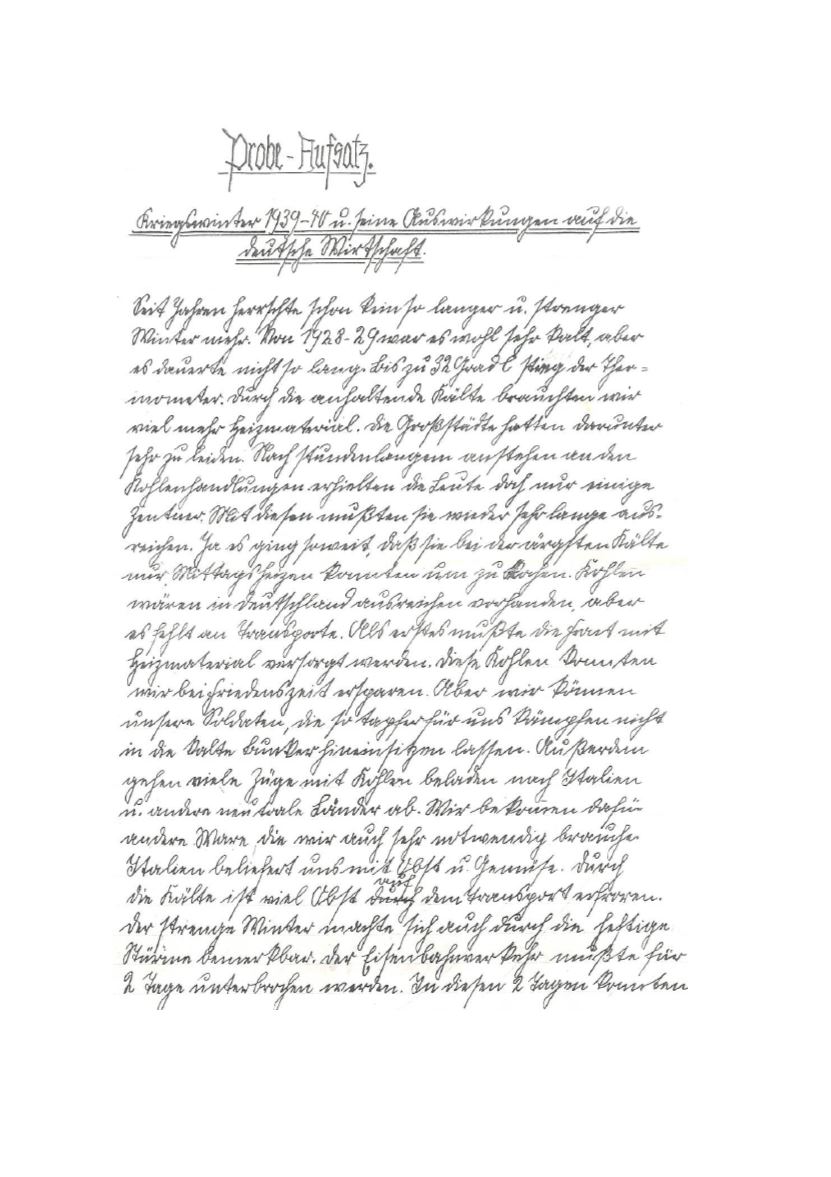 Probe-Aufsatz.
Kriegswinter 1939-40 u. seine Auswirkungen auf die
deutsche Wirtschaft.
Seit Jahren herrschte schon kein so langer u. strenger
Winter mehr. Von 1928-29 war es wohl sehr kalt, aber
es dauerte nicht so lang. Bis zu 32 Grad stieg der Ther=
mometer. Durch die anhaltende Kälte brauchten wir
viel mehr Heizmaterial. Die Großstädte hatten darunter
sehr zu leiden. Nach stundenlangem anstehen an den
Kohlenhandlungen erhielten die Leute doch nur einige
Zentner. Mit diesen mußten sie wieder sehr lange aus-
reichen. Ja es ging soweit, daß sie bei der ärgsten Kälte
nur Mittags heizen konnten um zu kochen. Kohlen
wären in Deutschland ausreichen vorhanden, aber
es fehlt an Transporte. Als erstes mußte die Front mit
Heizmaterial versorgt werden. Diese Kohlen konnten
wir bei Friedenszeit ersparen. Aber wir können
unsere Soldaten, die so tapfer für uns kämpfen nicht
in die kalte Bunker hineinsitzen lassen. Außerdem
gehen viele Züge mit Kohlen beladen nach Italien
u. andere neutrale Länder ab. Wir bekommen dafür
andere Ware, die wir auch sehr notwendig brauche.
Italien beliefert uns mit Obst u. Gemüse. Durch
die Kälte ist viel Obst auf dem Transport erfroren.
Der strenge Winter machte sich auch durch die heftige
Stürme bemerkbar. Der Eisenbahnverkehr mußte für
2 Tage unterbrochen werden. In diesen 2 Tagen konnten